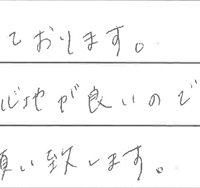 ております。
心地が良いので
願い致します。